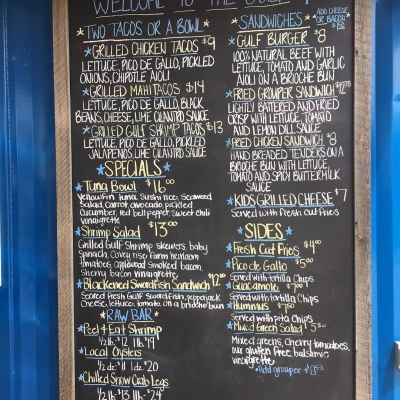 WELCOME TO THE GULF
TWO TACOS OR A BOWL
GRILLED CHICKEN TACOS $9
LETTUCE, PICO DE GALLO, PICKLED
ONIONS, CHIPOTLE AIOLI
GRILLED MAHI TACOS $14
LETTUCE, PICO DE GALLO, BLACK
BEANS, CHEESE, LIME CILANTRO SAUCE
GRILLED GULF SHRIMP TACOS $13
LETTUCE, PICO DE GALLO, PICKLED
JALAPENOS, LIME CILANTRO SAUCE
SPECIALS
Tuna Bowl $16.00
Yellowfin tuna, Sushi rice, Seaweed
Salad, Carrot, avocado, pickled
Cucumber, red bell pepper, sweet chili
vinaigrette
Shrimp Salad $13.00
Grilled Gulf Shrimp skewers, baby
Spinach, Covey rise Farm heirloom
tomatoes, applewood smoked bacon,
Sherry bacon vinaigrette
Blackened Swordfish Sandwich $12
Seared fresh Gulf Swordfish, pepperjack
Cheese, lettuce, tomato, on a brioche bun
RAW BAR
Peel & Eat Shrimp
1/2 lb. $12 1 lb. $19
Local Oysters
1/2 dz. $11 1 dz. $20
Chilled Snow Crab Legs
1/2 lb. $13 1 lb. $24
SANDWICHES
ADD CHEESE
OR BACON
GULF BURGER $8
100% NATURAL BEEF WITH
LETTUCE, TOMATO AND GARLIC
AIOLI ON A BRIOCHE BUN
FRIED GROUPER SANDWICH
LIGHTLY BATTERED AND FRIED
CRISP WITH LETTUCE, TOMATO
AND LEMON DILL SAUCE
FRIED CHICKEN SANDWICH $8
HAND BREADED TENDERS ON A
BRIOCHE BUN WITH LETTUCE,
TOMATO AND SPICY BUTTERMILK
SAUCE
KIDS GRILLED CHEESE $7
Served with Fresh Cut Fries
SIDES
Fresh Cut Fries $4.00
Pico de Gallo $5.00
Served with Tortilla Chips
Guacamole $7.00
Served with tortilla Chips
Hummus $7.50
Served with Pita Chips
Mixed Green Salad $5.50
Mixed greens, Cherry tomatoes,
our gluten free balsamic
vinaigrette
Add grouper